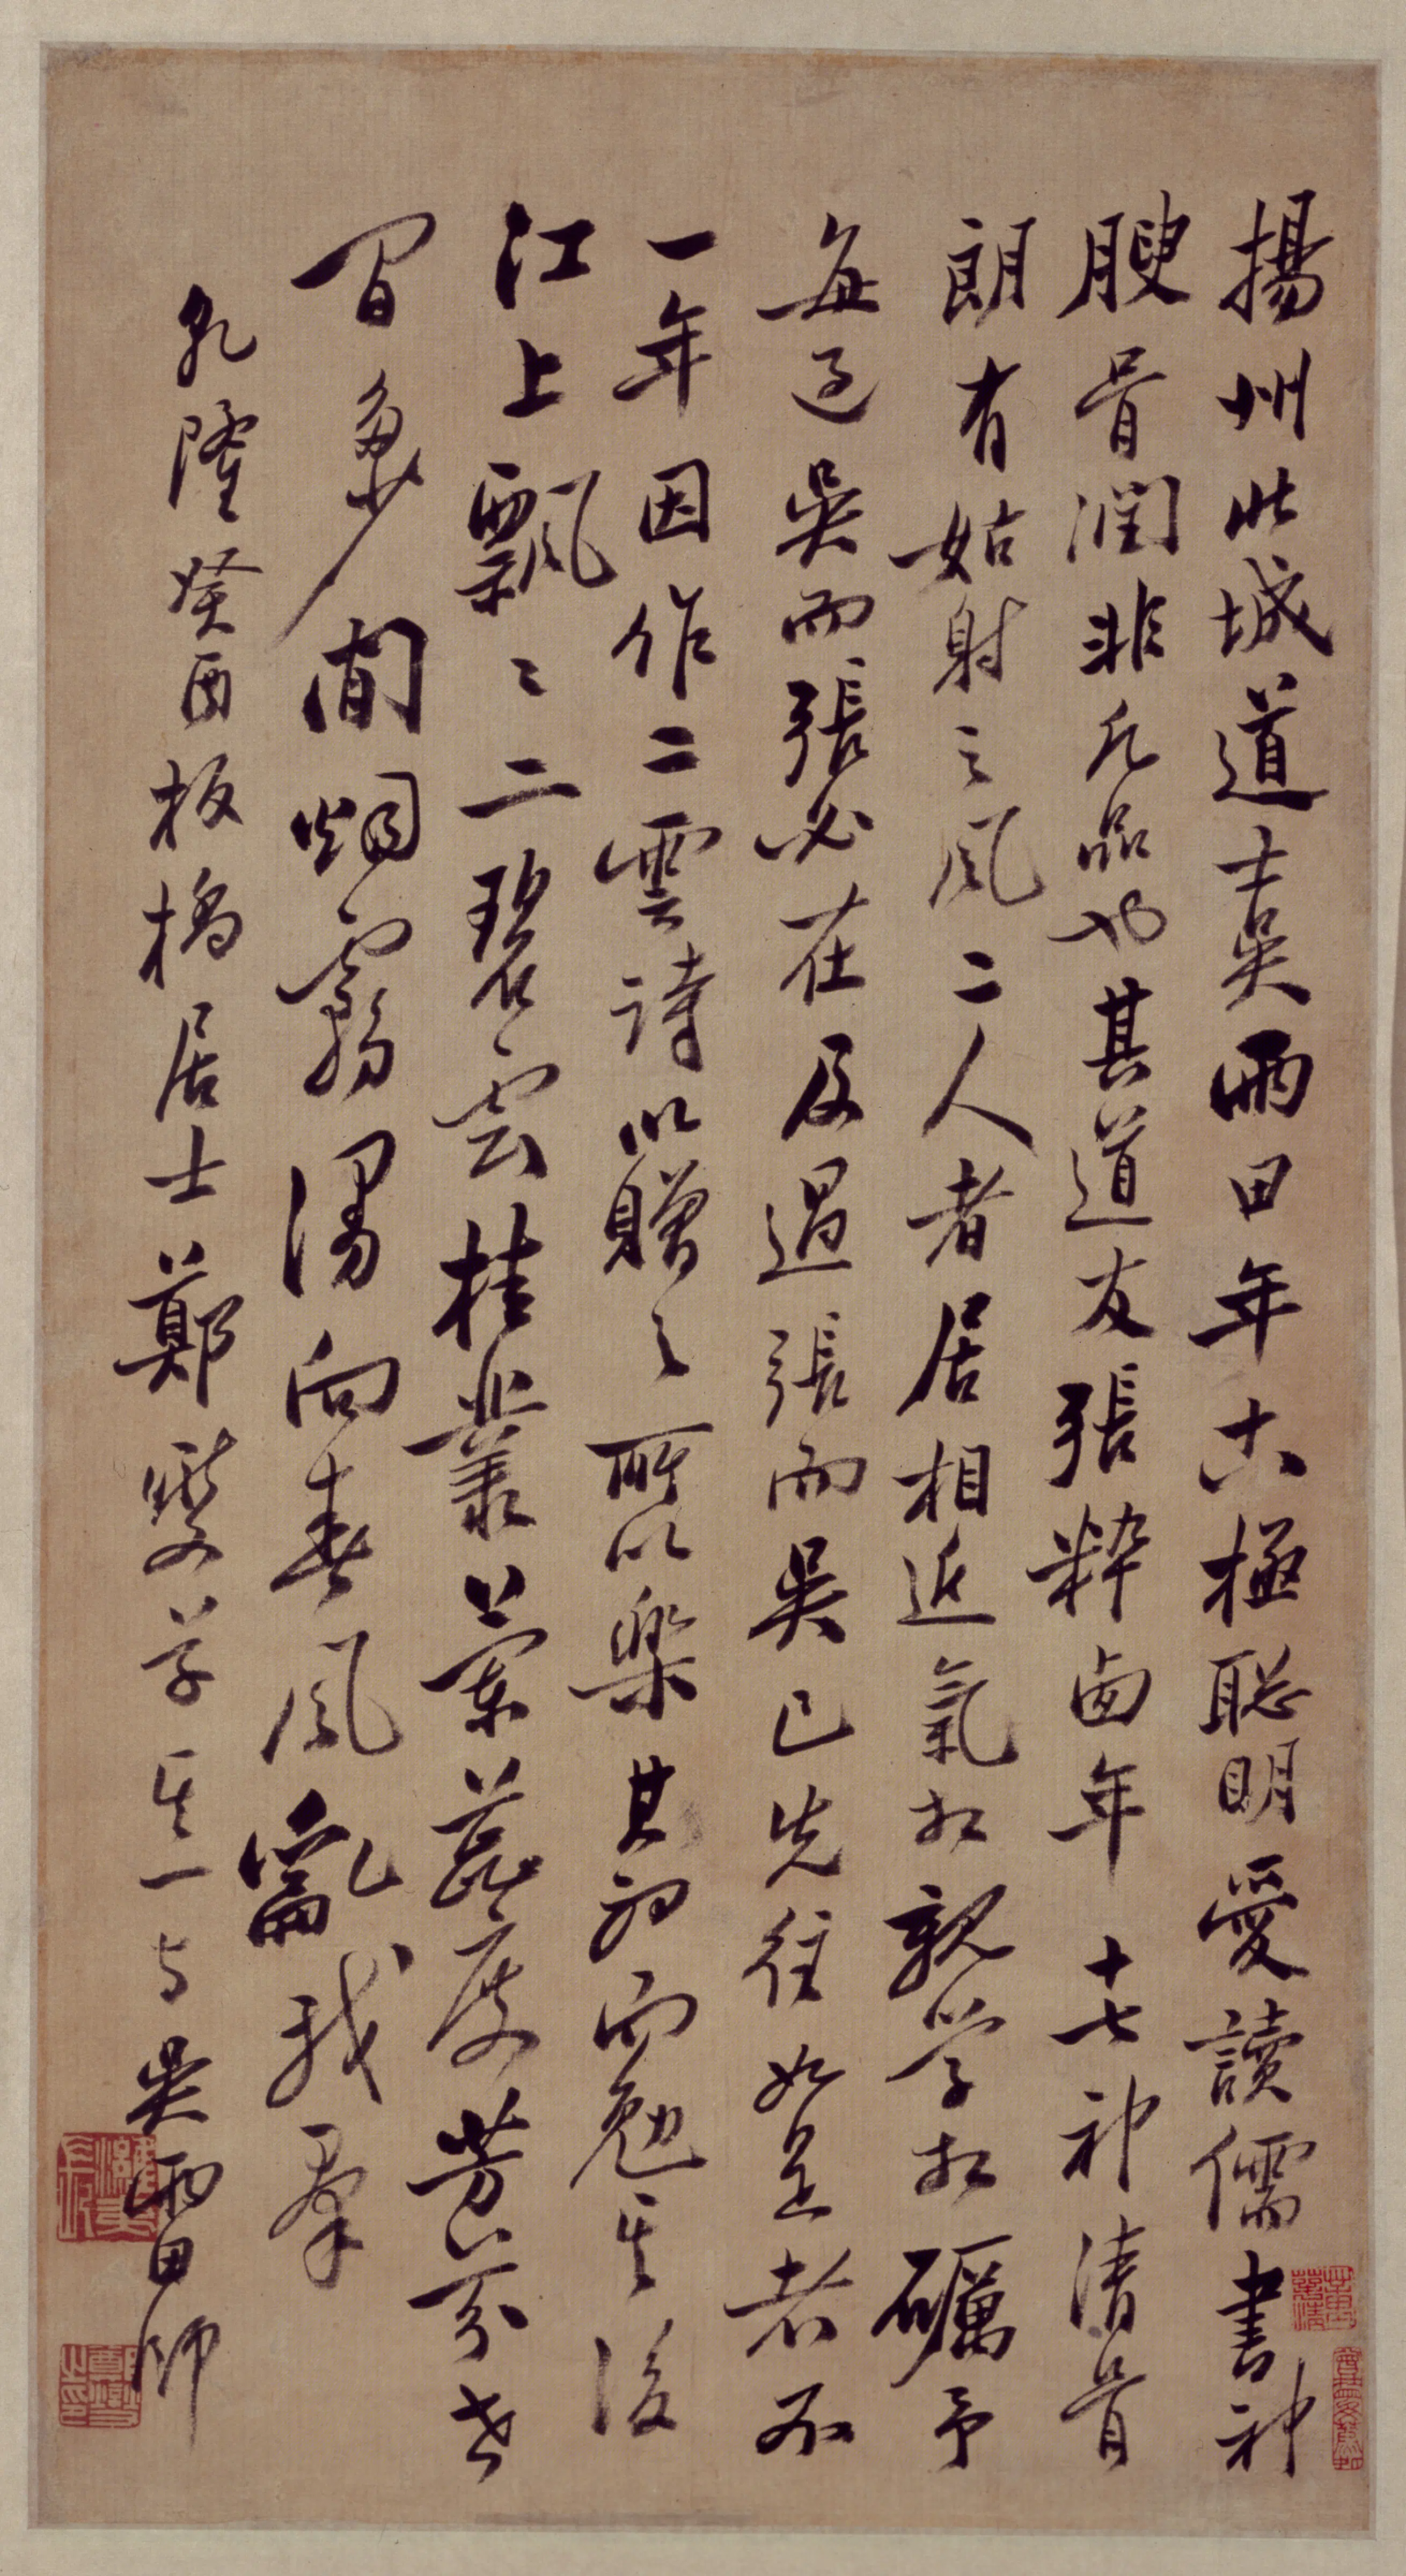 揚州此城道士吳雨田年十六極聰明愛讀儒書神
腴骨潤非凡品也其道友張粹卤年十七神清骨
朗有姑射之風二人者居相近氣相親學相礪予
每過吳而張必在及過張而吳已先往如是者不
一年因作二雲詩以贈之所以樂其初而勉其後
江上飄〻二碧雲桂叢蘭蕊度芳芬世
間多闲烟霧漫向春風亂我羣
乾隆癸酉板橋居士鄭燮草其一与吳雨田師
鄭燮之印